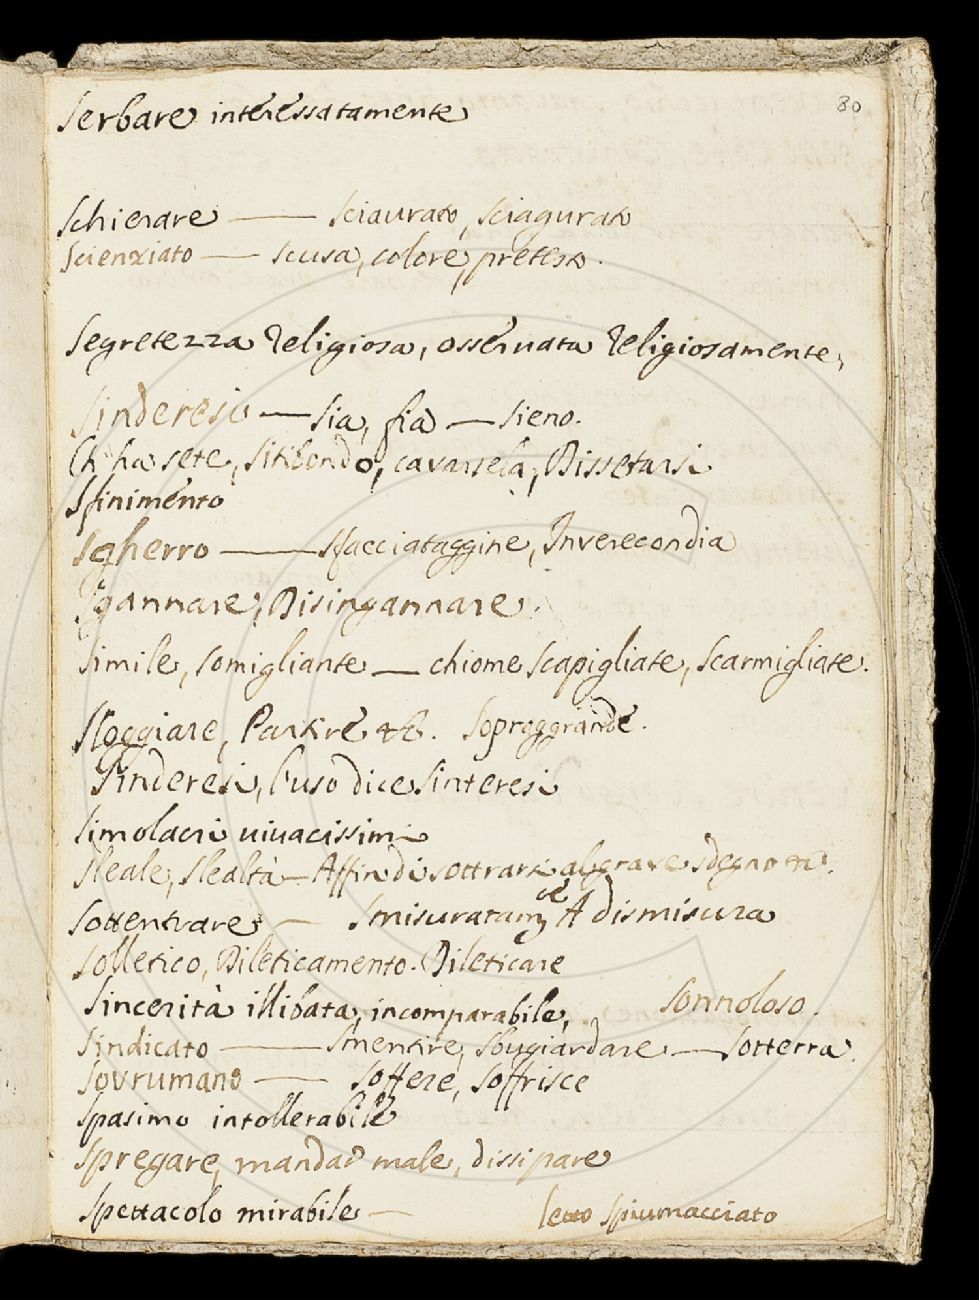 80
Serbare interessatamente
Schierare — sciaurato, sciagurato
Scienziato — scusa, colore, pretesto.
Segretezza religiosa, osservata religiosamente,
Sinderesi — sia, fia — sieno.
Ch' ha sete, sitibondo, cavarsela, Dissetarsi
Sfinimento
Sgherro — sfacciataggine, Inverecondia
Sgannare, Disingannare.
Simile, somigliante — chiome scapigliate, scarmigliate.
Sloggiare, Partire &c. Sopraggrande.
Sinderesi, l'uso dice Sinteresi
Simolacri vivacissimi
Sleale, Slealtà — Affin di sottrarsi al grave sdegno &c.
Sottentrare — Smisuratamte A dismisura
Solletico, Dileticamento. Dileticare
Sincerità illibata, incomparabile, Sonnoloso.
Sindicato — Smentire, Sbugiardare — Sotterra.
Sovrumano — Soffere, Soffrisce
Spasimo intollerabile
Spregare, mandar male, dissipare
Spettacolo mirabile — letto spiumacciato